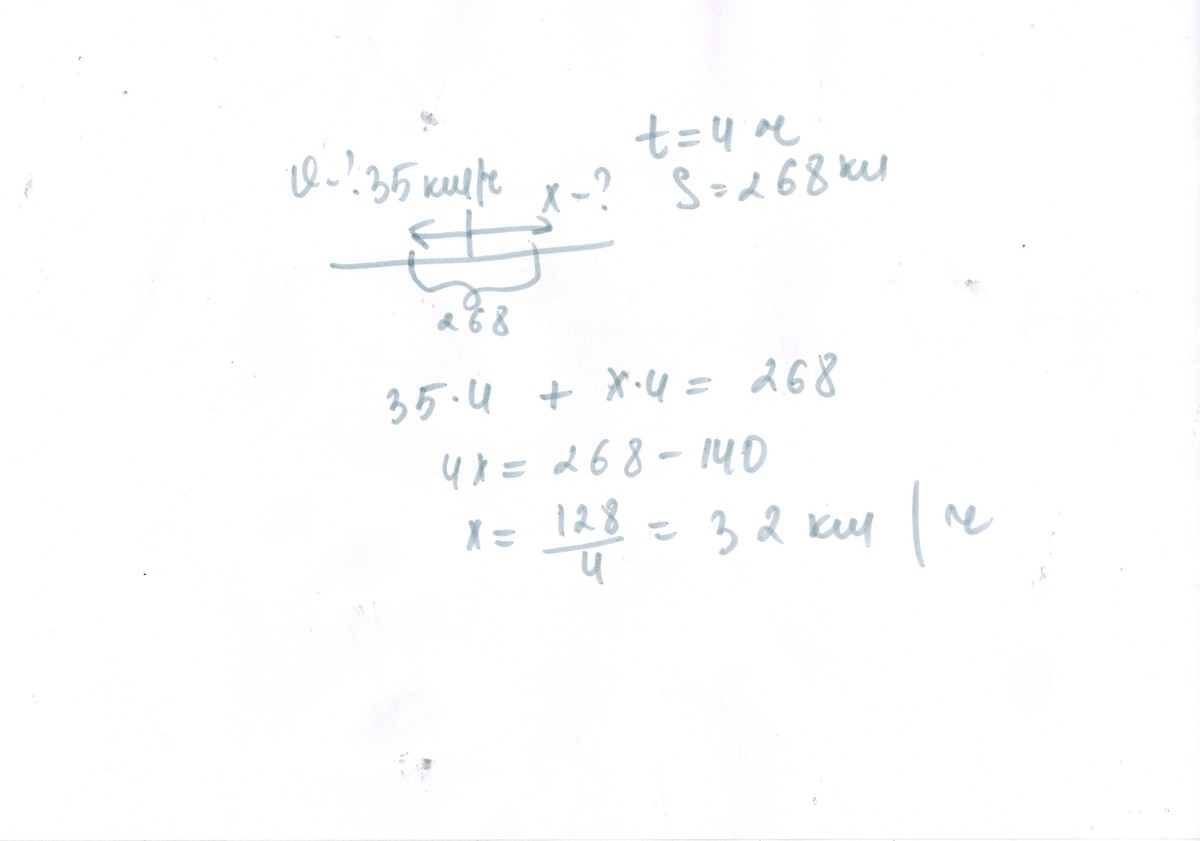 t = 4 ч
v - ? 35 км/ч x - ? S = 268 км
268
35 · 4 + x · 4 = 268
4x = 268 - 140
x = 128/4 = 32 км/ч